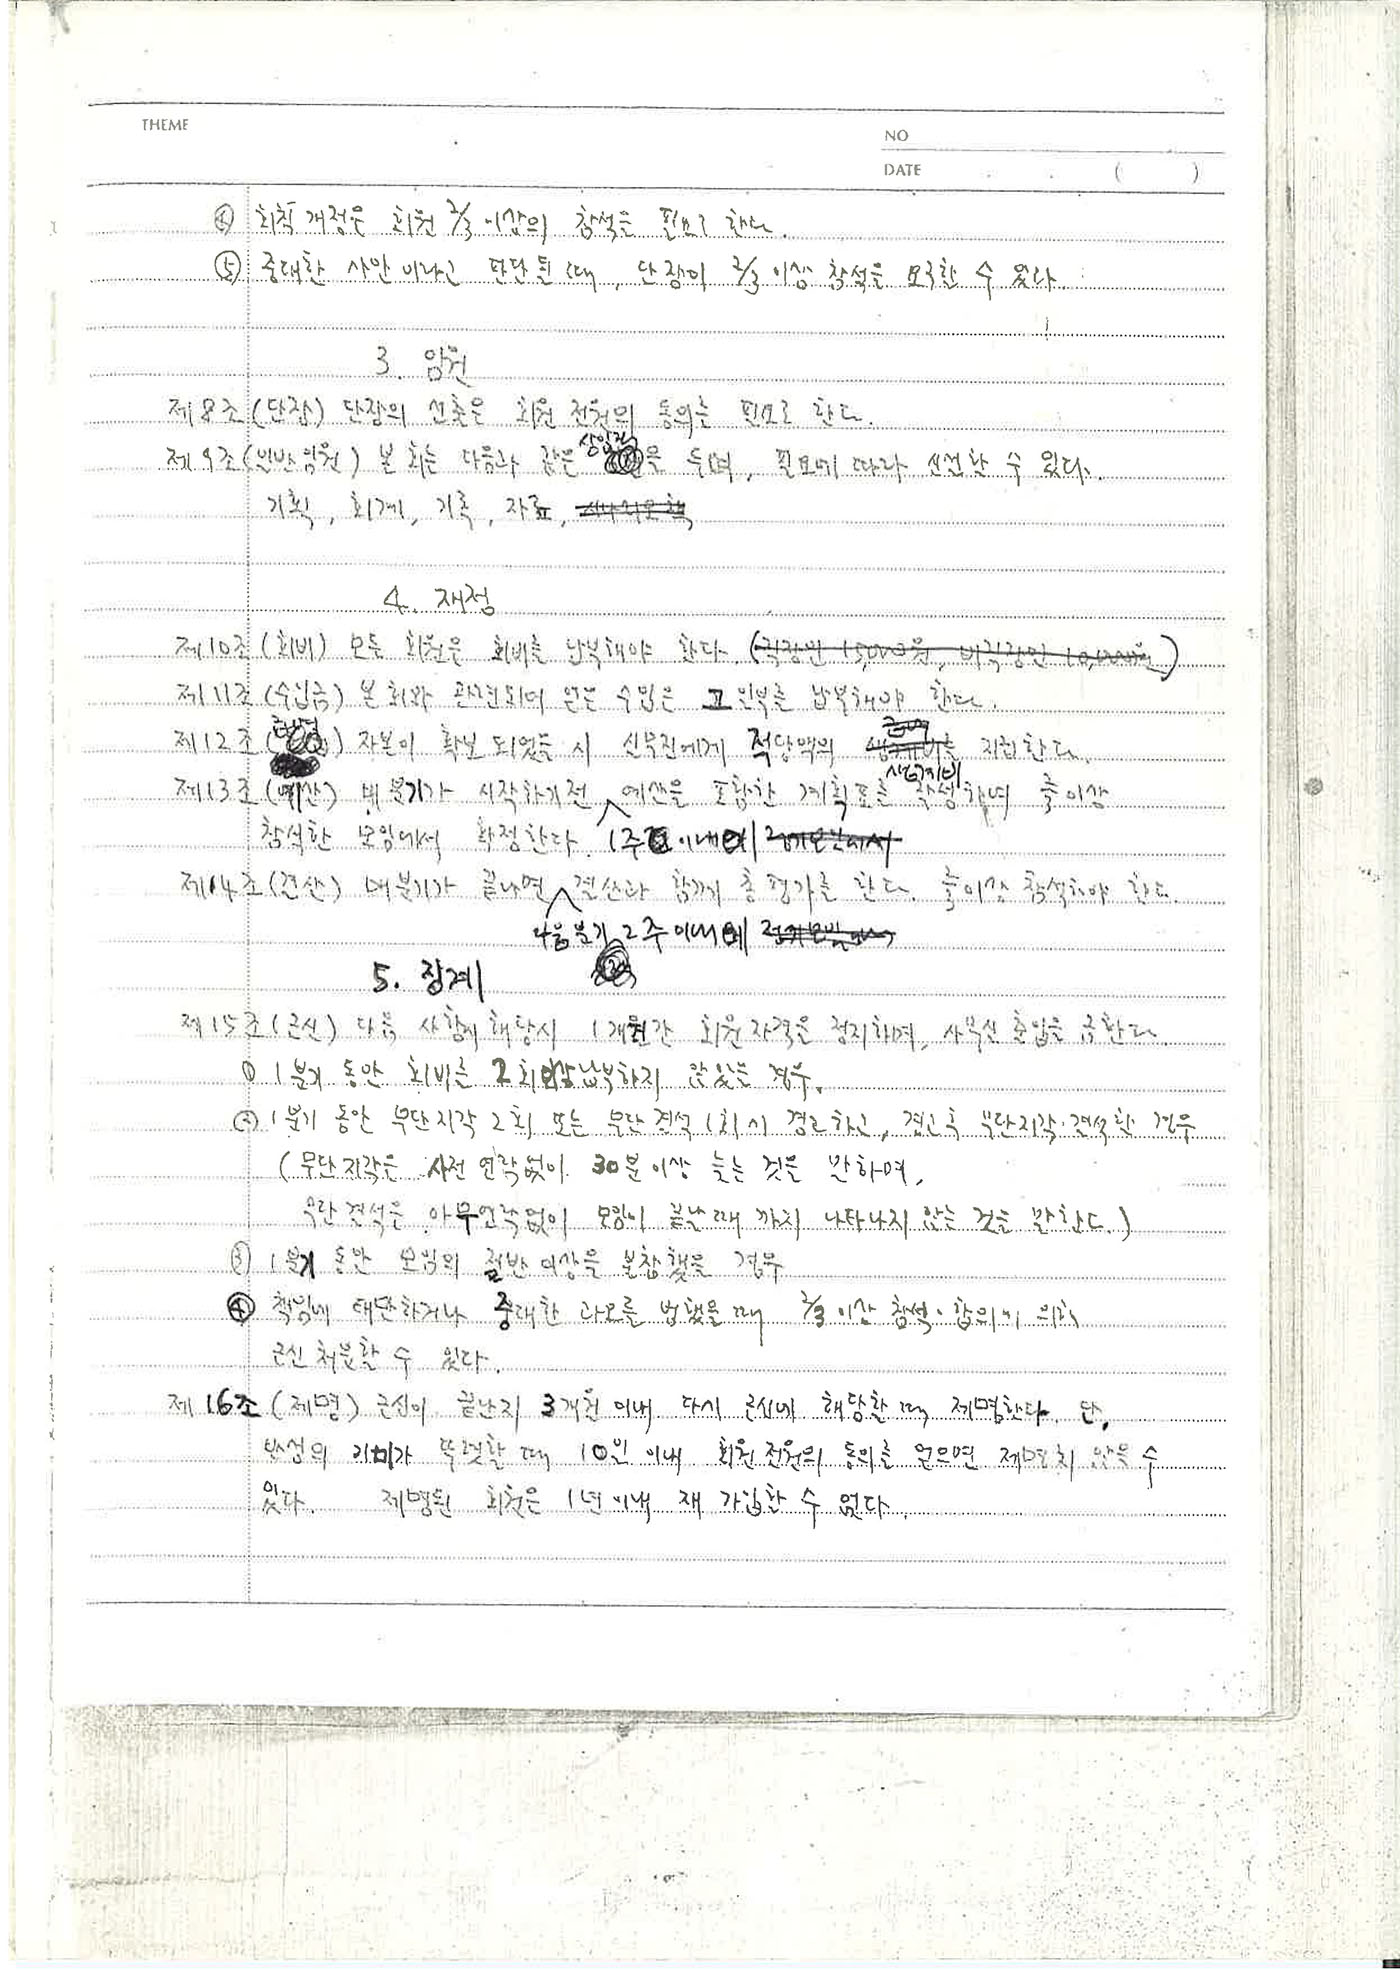 THEME
NO
DATE . . ( )
④ 회칙개정은 회원 2/3 이상의 참석을 필요로 한다.
⑤ 중대한 사안이라고 판단될 때, 단장이 2/3 이상 참석을 요구할 수 있다.
3. 임원
제8조 (단장) 단장의 선출은 회원 전원의 동의를 필요로 한다.
제9조 (일반임원) 본 회는 다음과 같은 을 두며, 필요에 따라 신설할 수 있다.
기획, 회계, 기록, 자료,
4. 재정
제10조 (회비) 모든 회원은 회비를 납부해야 한다. (직장인 15,000원, 비직장인 10,000원)
제11조 (수입금) 본 회와 관련되어 얻은 수입은 그 일부를 납부해야 한다.
제12조 ( ) 자본이 확보 되었을 시 실무진에게 적당액의 를 지원한다.
생계비
제13조 (예산) 매 분기가 시작하기전 예산을 포함한 계획표를 작성하며 2/3이상
참석한 모임에서 확정한다. 1주 이내에
제14조 (결산) 매분기가 끝나면 결산과 함께 총평가를 한다. 2/3이상 참석해야 한다.
다음분기 2주 이내에
5. 징계
제15조 (근신) 다음 사항에 해당시 1개월간 회원자격을 정지하며, 사무실 출입을 금한다.
① 1분기 동안 회비를 2회이상 납부하지 않았을 경우.
② 1분기 동안 무단지각 2회 또는 무단결석 1회시 경고하고, 경고후 무단지각·결석한 경우
(무단지각은 사전 연락없이 30분이상 늦는 것을 말하며,
무단결석은 아무연락없이 모임이 끝날때 까지 나타나지 않는 것을 말한다.)
③ 1분기 동안 모임의 절반 이상을 불참했을 경우
④ 책임에 태만하거나 중대한 과오를 범했을 때 2/3 이상 참석·합의에 의해
근신처분할 수 있다.
제16조 (제명) 근신이 끝난지 3개월 이내 다시 근신에 해당할 때 제명한다. 단,
반성의 기미가 뚜렷할 때 10일 이내 회원전원의 동의를 얻으면 제명치 않을 수
있다. 제명된 회원은 1년 이내 재 가입할 수 없다.